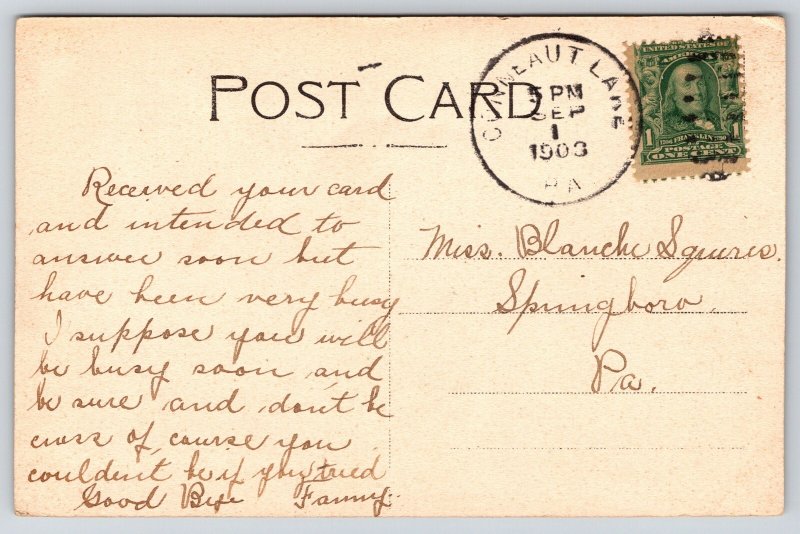 POST CARD
CONNEAUT LAKE
5 PM
SEP
1
1908
PA
UNITED STATES OF
AMERICA
1 1
1706 FRANKLIN 1790
POSTAGE
ONE CENT
Received your card
and intended to
answer soon but
have been very busy
I suppose you will
be busy soon and
be sure and don't be
cross of course you
couldent be if you tried
Good Bye Fanny.
Miss. Blanche Squires.
Springboro.
Pa.